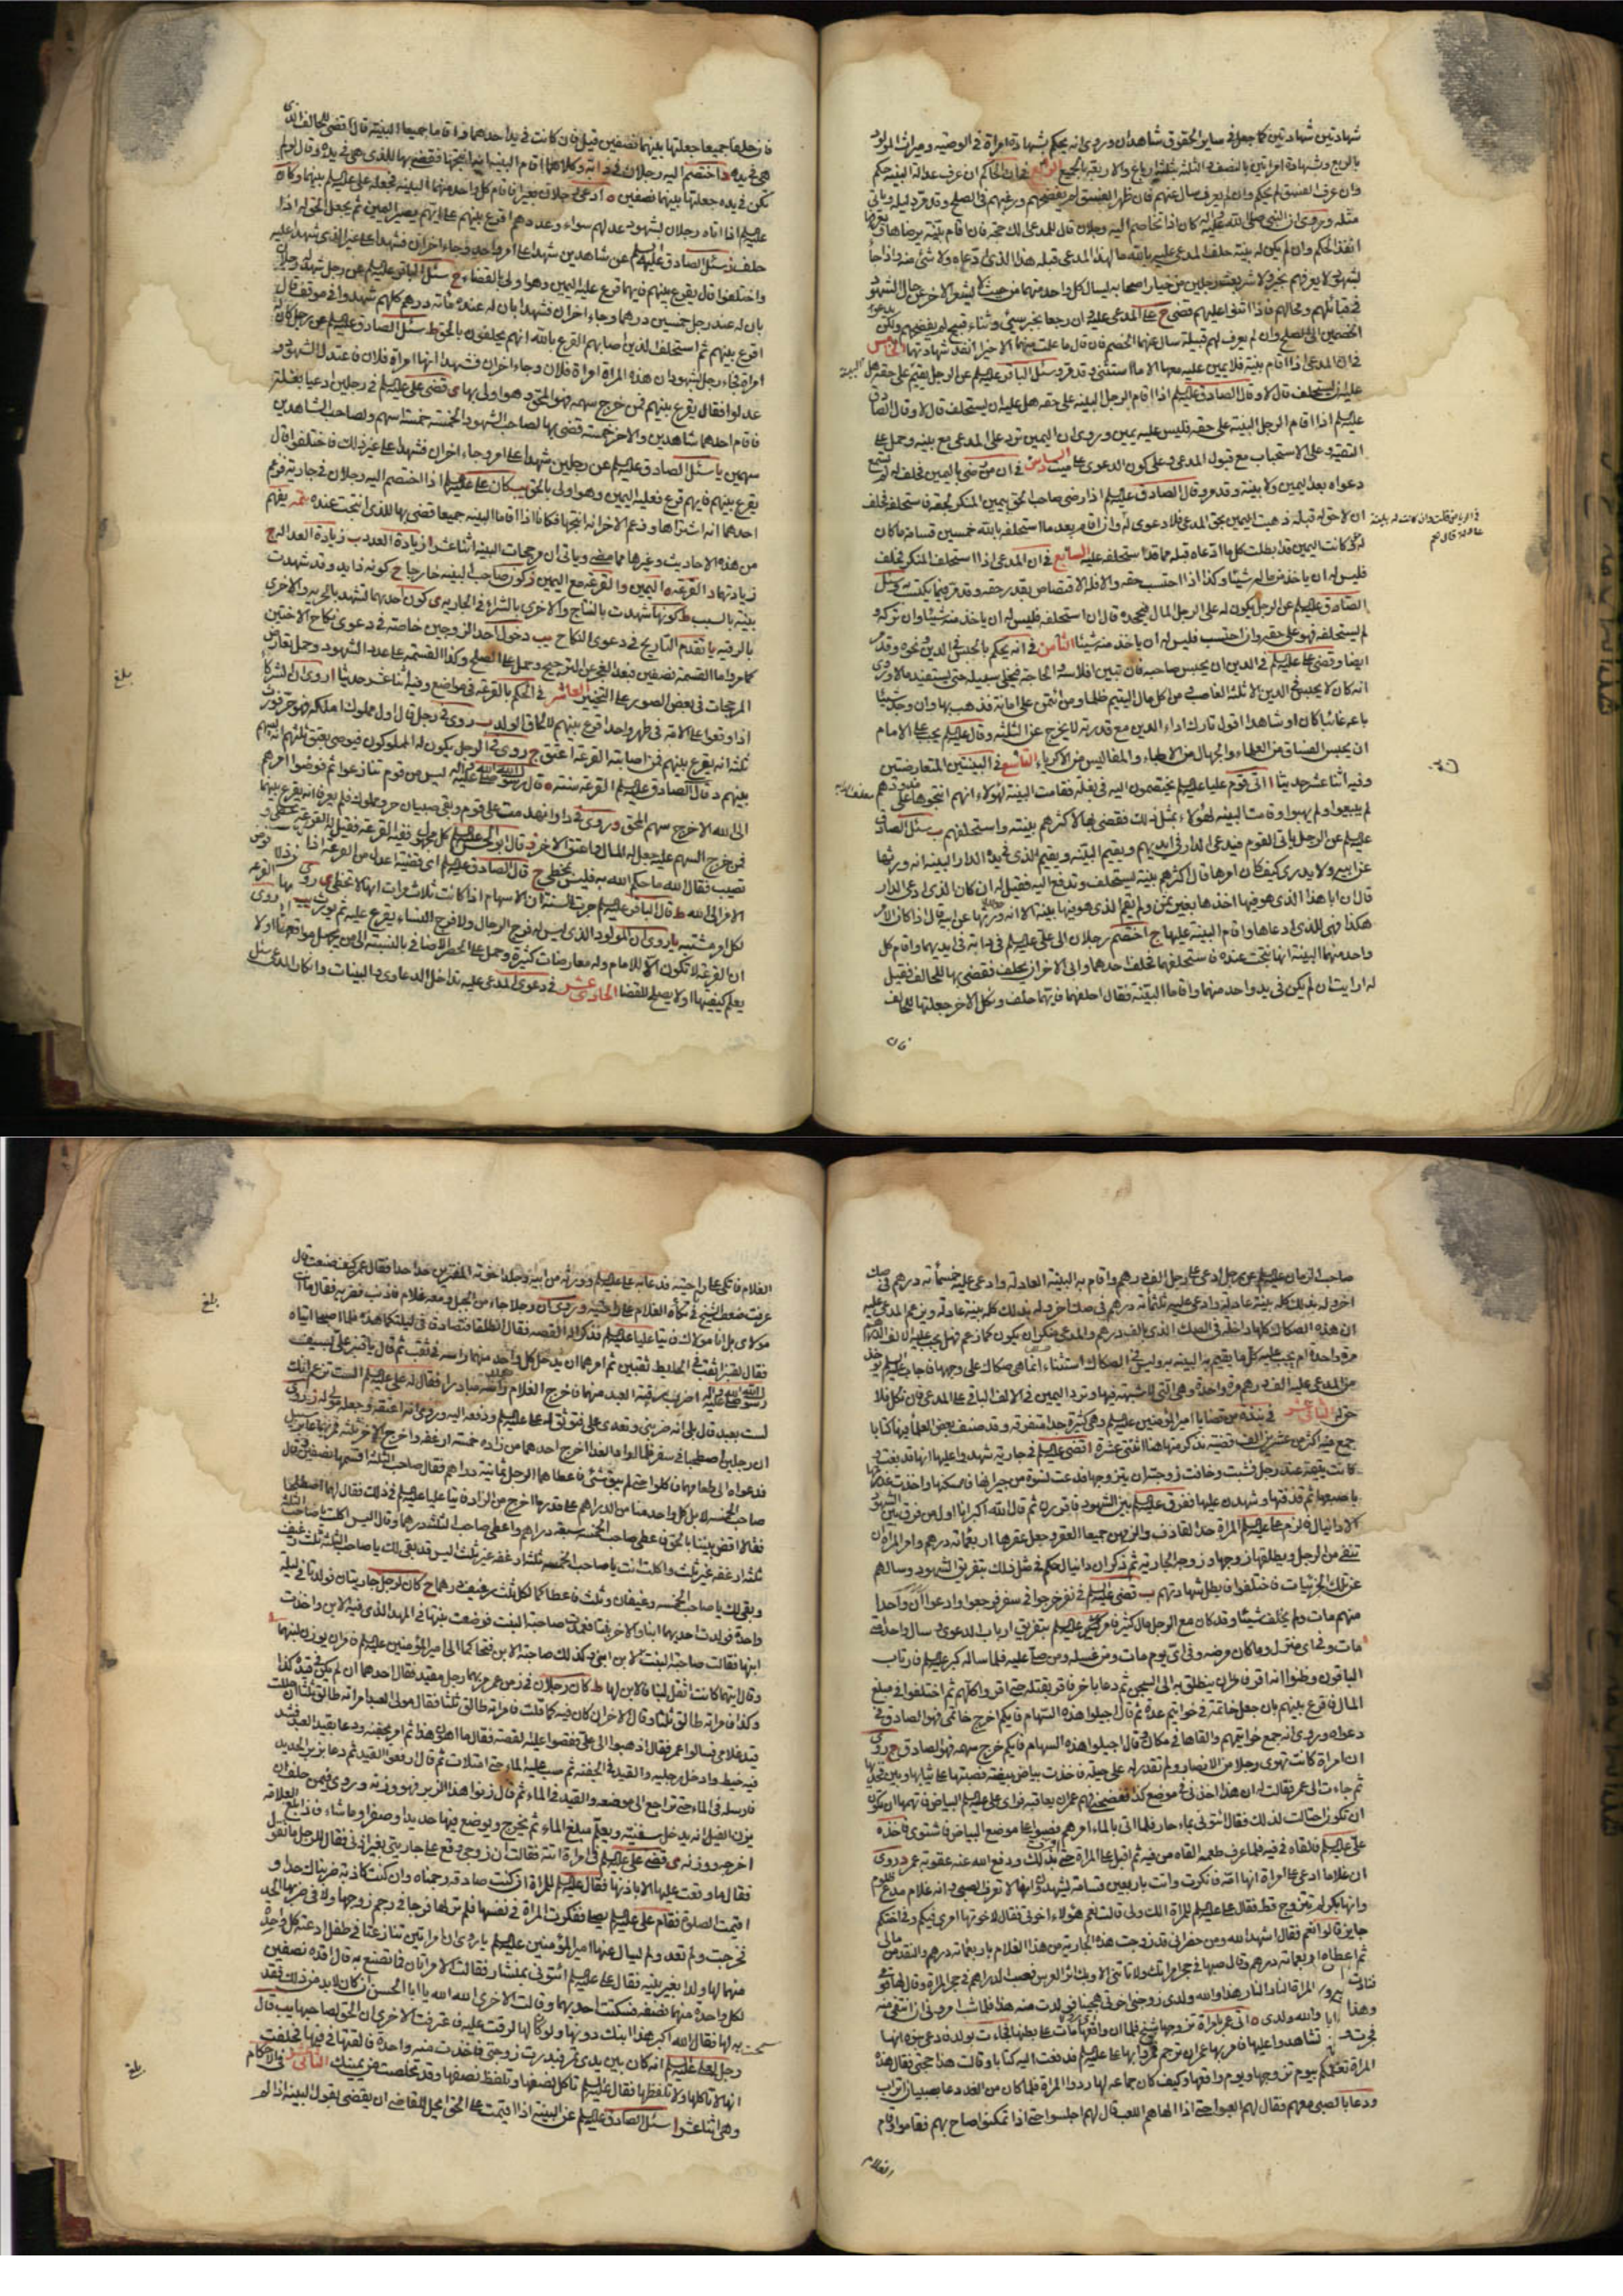 شهادتين شهادتين كما جعل في ساير الحقوق شاهدان وروى انه يحكم بشهادة امراة في الوصية وميراث المولود
بالربع وشهادة امراتين بالنصف في الثلثة بثلثة ارباع والاربعة بالجميع الرابع في ان الحاكم ان عرف عدالة البينة حكم
وان عرف الفسق لم يحكم وان لم يعرف سال عنهم فان ظهر الفسق لم يفضحهم ورغبهم في الصلح وقد مر دليله وياتي
مثله وروى ان النبي صلى الله عليه واله كان اذا تخاصم اليه رجلان قال للمدعى لك حجة فان اقام بينة يرضاها ويعرفها
انفذ الحكم وان لم يكن له بينة حلف المدعى عليه بالله ما لهذا المدعى قبله هذا الذي ادعاه ولا شئ منه واذا جاء
بشهود لا يعرفهم بخير ولا شر بعث رجلين من خيار اصحابه ليسال كل واحد منهما من حيث لا يشعر الاخر عن حال الشهود
في قبائلهم ومحالهم فاذا اثنوا عليهم قضى ح على المدعى عليه وان رجعا بخبر سيئ وثناء قبيح لم يفضحهم ولكن يدعو
الخصمين الى الصلح وان لم يعرف لهم قبيلة سال عنهما الخصم فان قال ما علمت منهما الا خيرا انفذ شهادتهما الخامس
في ان المدعى اذا اقام بينة فلا يمين عليه معها الا ما استثنى وقد مر وسئل الباقر عليه السلم عن الرجل يقيم على حقه البينة هل
عليه ان يستحلف قال لا وقال الصادق عليه السلم اذا اقام الرجل البينة على حقه هل عليه ان يستحلف قال لا وقال الصادق
عليه السلم اذا اقام الرجل البينة على حقه فليس عليه يمين وروى ان اليمين ترد على المدعى مع بينة وحمل على
التقية وعلى الاستحباب مع قبول المدعى وعلى كون الدعوى على ميت السادس في ان من رضى باليمين فحلف له لم تسمع
دعواه بعد اليمين ولا بينة وقد مر وقال الصادق عليه السلم اذا رضى صاحب الحق بيمين المنكر لحقه فاستحلفه فحلف
ان لا حق له قبله ذهبت اليمين بحق المدعى فلا دعوى له وان اقام بعد ما استحلفه بالله خمسين قسامة ما كان
له وكانت اليمين قد ابطلت كل ما ادعاه قبله مما قد استحلفه عليه السابع في ان المدعى اذا استحلف المنكر فحلف
فليس له ان ياخذ من ماله شيئا وكذا اذا احتسب حقه والا فله الاقتصاص بقدر حقه وقد مر فيما يكتسب به وسئل
الصادق عليه السلم عن الرجل يكون له على الرجل المال فيجحده قال ان استحلفه فليس له ان ياخذ منه شيئا وان تركه و
لم يستحلفه فهو على حقه وان احتسب فليس له ان ياخذ منه شيئا الثامن في انه يحكم بالحبس في الدين ونحوه وقد مر
ايضا وقضى على عليه السلم في الدين ان يحبس صاحبه فان تبين افلاسه والحاجة فيخلى سبيله حتى يستفيد مالا وروى
انه كان لا يحبس في الدين الا ثلثة الغاصب ومن اكل مال اليتيم ظلما ومن ائتمن على امانة فذهب بها وان وجد شيئا
باعه غائبا كان او شاهدا اقول تارك اداء الدين مع قدرته لا يخرج عن الثلثة وقال عليه السلم يجب على الامام
ان يحبس الفساق من العلماء والجهال من الاطباء والمفاليس من الاكرياء التاسع في البينتين المتعارضتين
وفيه اثنا عشر حديثا ا اتى قوم عليا عليه السلم يختصمون اليه في بغلة فقامت البينة لهؤلاء انهم انتجوها على مذودهم
لم يبيعوا ولم يهبوا وقامت البينة لهؤلاء بمثل ذلك فقضى بها لاكثرهم بينة واستحلفهم ب سئل الصادق
عليه السلم عن الرجل ياتي القوم فيدعى الدار في ايديهم ويقيم البينة ويقيم الذي في يده الدار البينة انه ورثها
عن ابيه ولا يدرى كيف كان امرها قال اكثرهم بينة يستحلف وتدفع اليه فقيل له ان كان الذي ادعى الدار
قال ان ابا هذا الذي هو فيها اخذها بغير ثمن ولم يقم الذي هو فيها بينة الا انه ورثها عن ابيه قال اذا كان الامر
هكذا فهي للذي ادعاها واقام البينة عليها ج اختصم رجلان الى على عليه السلم في دابة في ايديهما واقام كل
واحد منهما البينة انها نتجت عنده فاستحلفهما فحلف احدهما وابى الاخر ان يحلف فقضى بها للحالف فقيل
له ارايت ان لم يكن في يد واحد منهما واقاما البينة فقال احلفهما فايهما حلف ونكل الاخر جعلتها للحالف
فان
فان حلفا جميعا جعلتها بينهما نصفين قيل فان كانت في يد احدهما واقاما جميعا البينة قال اقضى للحالف الذي
هي في يده د اختصم اليه رجلان في دابة وكلاهما اقام البينة انه انتجها فقضى بها للذي هي في يده وقال لو لم
تكن في يده جعلتها بينهما نصفين ه ادعى رجلان بعيرا فاقام كل واحد منهما البينة فجعله على عليه السلم بينهما و كان
عليه السلم اذا اتاه رجلان بشهود عدلهم سواء وعددهم اقرع بينهم على ايهم يصير اليمين ثم يجعل الحق له اذا
حلف ز سئل الصادق عليه السلم عن شاهدين شهدا على امر واحد وجاء اخران فشهدا على غير الذي شهدا عليه
واختلفوا قال يقرع بينهم فايهما قرع عليه اليمين وهو اولى بالقضاء ح سئل الباقر عليه السلم عن رجل شهد له رجلان
بان له عند رجل خمسين درهما وجاء اخران فشهدا بان له عنده مائة درهم كلهم شهدوا في موقف قال
اقرع بينهم ثم استحلف الذين اصابهم القرع بالله انهم يحلفون بالحق ط سئل الصادق عليه السلم عن رجل كان له
امراة فجاء رجل بشهود ان هذه المراة امراة فلان وجاء اخران فشهدا انها امراة فلان فاعتدل الشهود و
عدلوا فقال يقرع بينهم فمن خرج سهمه فهو المحق وهو اولى بها ى قضى على عليه السلم في رجلين ادعيا بغلة
فاقام احدهما شاهدين والاخر خمسة فقضى بها لصاحب الشهود الخمسة خمسة اسهم ولصاحب الشاهدين
سهمين يا سئل الصادق عليه السلم عن رجلين شهدا على امر وجاء اخران فشهدا على غير ذلك فاختلفوا قال
يقرع بينهم فايهم قرع فعليه اليمين وهو اولى بالحق يب كان على عليه السلم اذا اختصم اليه رجلان في جارية فزعم
احدهما انه اشتراها وزعم الاخر انه انتجها فكانا اذا اقاما البينة جميعا قضى بها للذي انتجت عنده
من هذه الاحاديث وغيرها مما مضى وياتى ان مرجحات البينة اثنا عشر ا زيادة العدد ب زيادة العدالة ج
زيادتهما د القرعة ه اليمين و القرعة مع اليمين ز كون صاحب البينة خارجا ح كونه ذا يد وقد شهدت
بينة بالسبب ط كونها شهدت بالنتاج والاخرى بالشراء في الجارية ى كون احدهما تشهد بالحرية والاخرى
بالرقية يا تقدم التاريخ في دعوى النكاح يب دخول احد الزوجين خاصة في دعوى نكاح الاختين
كما مر واما القسمة نصفين فبعد العجز عن الترجيح وحمل على الصلح وكذا القسمة على عدد الشهود وحمل تعارض
المرجحات في بعض الصور على التخيير العاشر في الحكم بالقرعة في مواضع وفيه اثنا عشر حديثا ا روى ان الشركاء
اذا وقعوا على الامة في طهر واحد اقرع بينهم لالحاق الولد ب روى في رجل قال اول مملوك املكه فهو حر فورث
ثلثة انه يقرع بينهم فمن اصابته القرعة اعتق ج روى في الرجل يكون له المملوكون فيوصى بعتق ثلثهم انه يسهم
بينهم د قال الصادق عليه السلم القرعة سنة ه قال رسول الله صلى الله عليه واله ليس من قوم تنازعوا ثم فوضوا امرهم
الى الله الا خرج سهم المحق و روى في دار انهدمت على قوم وبقى صبيان حر ومملوك فلم يعرفا انه يقرع بينهما
فمن خرج السهم عليه جعل له المال واعتق الاخر ز قال ابو الحسن عليه السلم كل مجهول ففيه القرعة فقيل له القرعة تخطى و
تصيب فقال الله ما حكم الله به فليس بمخطئ ح قال الصادق عليه السلم اى قضية اعدل من القرعة اذا فوض
الامر الى الله ط قال الباقر عليه السلم جرت السنة ان الاسهام اذا كانت ثلاث مرات انها لا تخطى ى روى
لكل امر مشتبه يا روى ان المولود الذي ليس له فرج الرجال ولا فرج النساء يقرع عليه ثم يورث يب روى
ان القرعة لا تكون الا للامام وله معارضات كثيرة وحمل على الحصر الاضافى بالنسبة الى من يجهل مواقعها او لا
يعلم كيفيتها او لا يصلح للقضا الحادى عشر في دعوى المدعى عليه تداخل الدعاوى والبينات وانكار المدعى سئل
بلغ
صاحب الزمان عليه السلم عن رجل ادعى على رجل الف درهم واقام به البينة العادلة وادعى عليه خمسمائة درهم في صك
اخر وله بذلك كله بينة عادلة وادعى عليه ثلثمائة درهم في صك اخر وله بذلك كله بينة عادلة ويزعم المدعى عليه
ان هذه الصكاك كلها داخلة في الصك الذي بالف درهم والمدعى منكر ان يكون كما زعم فهل يجب عليه الالف درهم
مرة واحدة ام يجب عليه كل ما يقيم به البينة به وليس في الصكاك استثناء انما هي صكاك على وجهها فاجاب عليه السلم يوخذ
من المدعى عليه الف درهم مرة واحدة وهي التي لا شبهة فيها وترد اليمين في الالف الباقي على المدعى فان نكل فلا
حق له الثاني عشر في نبذة من قضايا امير المؤمنين عليه السلم وهي كثيرة جدا متفرقة وقد صنف بعض العلما فيها كتابا
جمع فيه اكثر من عشرين الف قضية نذكر منها هنا اثنتى عشرة ا قضى عليه السلم في جارية شهدوا عليها انها قد بغت و
كانت يتيمة عند رجل فشبت وخافت زوجته ان يتزوجها فدعت بنسوة من جيرانها فامسكنها واخذت عذرتها
باصبعها ثم قذفتها وشهدن عليها ففرق عليه السلم بين الشهود فاقررن ثم قال الله اكبر انا اول من فرق بين الشهود
الا دانيال فالزم على عليه السلم المراة حد القاذف والزمهن جميعا العقر وجعل عقرها اربعمائة درهم وامر المراة ان
تنفى من الرجل ويطلقها زوجها وزوجه الجارية ثم ذكر ان دانيال حكم في مثل ذلك بتفريق الشهود وسالهم
عن تلك الجزئيات فاختلفوا فابطل شهادتهم ب قضى عليه السلم في نفر خرجوا في سفر فرجعوا وادعوا ان واحدا
منهم مات ولم يخلف شيئا وقد كان مع الرجل مال كثير فامر على عليه السلم بتفريق ارباب الدعوى وسال واحدا متى
مات وفي اى منزل وما كان مرضه وفي اى يوم مات ومن غسله ومن صلى عليه فلما ساله كبر عليه السلم فارتاب
الباقون وظنوا انه اقر فامر ان ينطلق به الى السجن ثم دعا باخر فاقر بقتله حتى اقروا كلهم ثم اختلفوا في مبلغ
المال فاقرع بينهم بان جعل خاتمه في خواتيم عدة ثم قال اجيلوا هذه السهام فايكم اخرج خاتمي فهو الصادق في
دعواه وروى انه جمع خواتيمهم والقاها في مكان وقال اجيلوا هذه السهام فايكم خرج سهمه فهو الصادق ج روى
ان امراة كانت تهوى رجلا من الانصار ولم تقدر له على حيلة فاخذت بياض بيضة فصبتها على ثيابها وبين فخذيها
ثم جاءت الى عمر فقالت له ان هذا اخذني في موضع كذا ففضحني فهم عمر ان يعاقبه فراى على عليه السلم البياض فاتهمها ان تكون
ان تكون احتالت لذلك فقال ائتوني بماء حار فلما اتى بالماء امرهم فصبوا على موضع البياض فاشتوى فاخذه
على عليه السلم فالقاه في فيه فلما عرف طعمه القاه من فيه ثم اقبل على المراة حتى اقرت بذلك ودفع الله عنه عقوبة عمر د روى
ان غلاما ادعى على امراة انها امه فانكرت واتت باربعين قسامة يشهدون انها لا تعرف الصبى وانه غلام مدع ظلوم
وانها بكر لم تتزوج قط فقال على عليه السلم للمراة الك ولى قالت نعم هؤلاء اخوتي فقال لاخوتها امري فيكم وفي اختكم
جايز قالوا نعم فقال اشهد الله ومن حضر اني قد زوجت هذه الجارية من هذا الغلام باربعمائة درهم والنقد من مالي
ثم اعطاه اربعمائة درهم وقال صبها في حجر امراتك ولا تاتني الا وبك اثر العرس فصب الدراهم في حجر المراة وقال لها قومي
فنادت المراة النار النار هذا والله ولدي زوجني اخوتي هجينا فولدت منه هذا فلما شب امروني ان انتفي منه
وهذا والله ولدي ه اتى عمر بامراة تزوجها شيخ فلما ان واقعها مات على بطنها فجاءت بولد فادعى بنوه انها
فجرت وتشاهدوا عليها فامر بها عمر ان ترجم فمروا بها على على عليه السلم فدفعت اليه كتابا وقالت هذا حجتي فقال هذه
المراة تعلمكم بيوم تزوجها ويوم واقعها وكيف كان جماعه لها ردوا المراة فلما كان من الغد دعا بصبيان اتراب
ودعا بالصبي معهم فقال لهم العبوا حتى اذا الهاهم اللعب قال لهم اجلسوا حتى اذا تمكنوا صاح بهم فقاموا وقام
الغلام
الغلام فاتكى على راحتيه فدعا به على عليه السلم وورثه من ابيه وجلد اخوته المفترين حدا حدا فقال عمر كيف صنعت قال
عرفت ضعف الشيخ في تكاة الغلام على راحتيه و روى ان رجلا جاء من الجبل ومعه غلام فاذنب فضربه فقال ما انت
مولاى بل انا مولاك فاتيا عليا عليه السلم فذكرا له القصة فقال انطلقا فتصادقا في ليلتكما هذه فلما اصبحا اتياه
فقال لقنبر اثقب في الحايط ثقبين ثم امرهما ان يدخل كل واحد منهما راسه في ثقب ثم قال يا قنبر على بسيف
رسول الله صلى الله عليه واله اضرب رقبة العبد منهما فاخرج الغلام راسه مبادرا فقال له على عليه السلم الست تزعم انك
لست بعبد قال بلى انه ضربني وتعدى على فتوثق له على عليه السلم ودفعه اليه وروى انه اعتقه وجعله مولى له ز روى
ان رجلين اصطحبا في سفر فلما ارادا الغدا اخرج احدهما من زاده خمسة ارغفة واخرج الاخر ثلثة فمر بهما عابر سبيل
فدعواه الى طعامهما فاكلوا حتى لم يبق شئ فاعطاهما الرجل ثمانية دراهم فقال صاحب الثلثة اقسمها نصفين وقال
صاحب الخمسة لا بل كل واحد منا من الدراهم على قدر ما اخرج من الزاد فاتيا عليا عليه السلم في ذلك فقال لهما اصطلحا
فقالا اقض بيننا بالحق فاعطى صاحب الخمسة سبعة دراهم واعطى صاحب الثلثة درهما وقال اليس اكلت يا صاحب الثلثة
ثلثة ارغفة غير ثلث واكلت انت يا صاحب الخمسة ثلثة ارغفة غير ثلث اليس قد بقى لك يا صاحب الثلثة ثلث رغيف
وبقى لك يا صاحب الخمسة رغيفان وثلث فاعطاكما لكل ثلث رغيف درهما ح كان لرجل جاريتان فولدتا في ليلة
واحدة فولدت احديهما ابنا والاخرى بنتا فعمدت صاحبة البنت فوضعت بنتها في المهد الذي فيه الابن واخذت
ابنها فقالت صاحبة البنت الابن ابني وكذلك صاحبة الابن فتحاكما الى امير المؤمنين عليه السلم فامر ان يوزن لبنهما
وقال ايتهما كانت اثقل لبنا فالابن لها ط كان رجلان في زمن عمر مر بهما رجل مقيد فقال احدهما ان لم يكن في قيده كذا
وكذا فامراته طالق ثلثا وقال الاخر ان كان فيه كما قلت فامراته طالق ثلثا فقال مولى العبد امراته طالق ثلثا ان حللت
قيد غلامي فسالوا عمر فقال اذهبوا الى على فقصوا عليه القصة فقال ما اهون هذا ثم امر بجفنة ودعا بقيد العبد فشد
فيه خيط وادخل رجليه والقيد في الجفنة ثم صب عليه الماء حتى امتلات ثم قال ارفعوا القيد ثم دعا بزبر الحديد
فارسله في الماء حتى تراجع الى موضعه والقيد في الماء ثم قال زنوا هذا الزبر فهو وزنه وروى فيمن حلف ان
يزن الفيل انه يدخل سفينة ويعلم مبلغ الماء ثم يخرج ويوضع فيها حديدا وصفرا وما شاء فاذا بلغ العلامة
اخرجه ووزنه ى قضى على عليه السلم في امراة اتته فقالت ان زوجي وقع على جاريتي بغير اذني فقال للرجل ما تقول
فقال ما وقعت عليها الا باذنها فقال عليه السلم للمراة ان كنت صادقة رجمناه وان كنت كاذبة ضربناك حدا و
اقيمت الصلوة فقام على عليه السلم يصلي ففكرت المراة في نفسها فلم تر لها فرجا في رجم زوجها ولا في ضربها الحد
فخرجت ولم تعد ولم يسال عنها امير المؤمنين عليه السلم يا روى ان امراتين تنازعتا في طفل ادعته كل واحدة
منهما لها ولدا بغير بينة فقال على عليه السلم ائتوني بمنشار فقالت المراتان فما تصنع به قال اقده نصفين
لكل واحدة منهما نصفه فسكتت احديهما وقالت الاخرى الله الله يا ابا الحسن ان كان لا بد من ذلك فقد
سمحت به لها فقال الله اكبر هذا ابنك دونها ولو كان لها لرقت عليه فاعترفت الاخرى ان الحق لصاحبتها يب قال
رجل لعلى عليه السلم انه كان بين يدي تمر فبدرت زوجتي فاخذت منه واحدة فالقتها في فيها فحلفت
انها لا تاكلها ولا تلفظها فقال عليه السلم تاكل نصفها وتلفظ نصفها وقد تخلصت من يمينك الثاني في الاحكام
وهي اثنا عشر ا سئل الصادق عليه السلم عن البينة اذا اقيمت على الحق ايحل للقاضي ان يقضى بقول البينة اذا لم
بلغ
بلغ